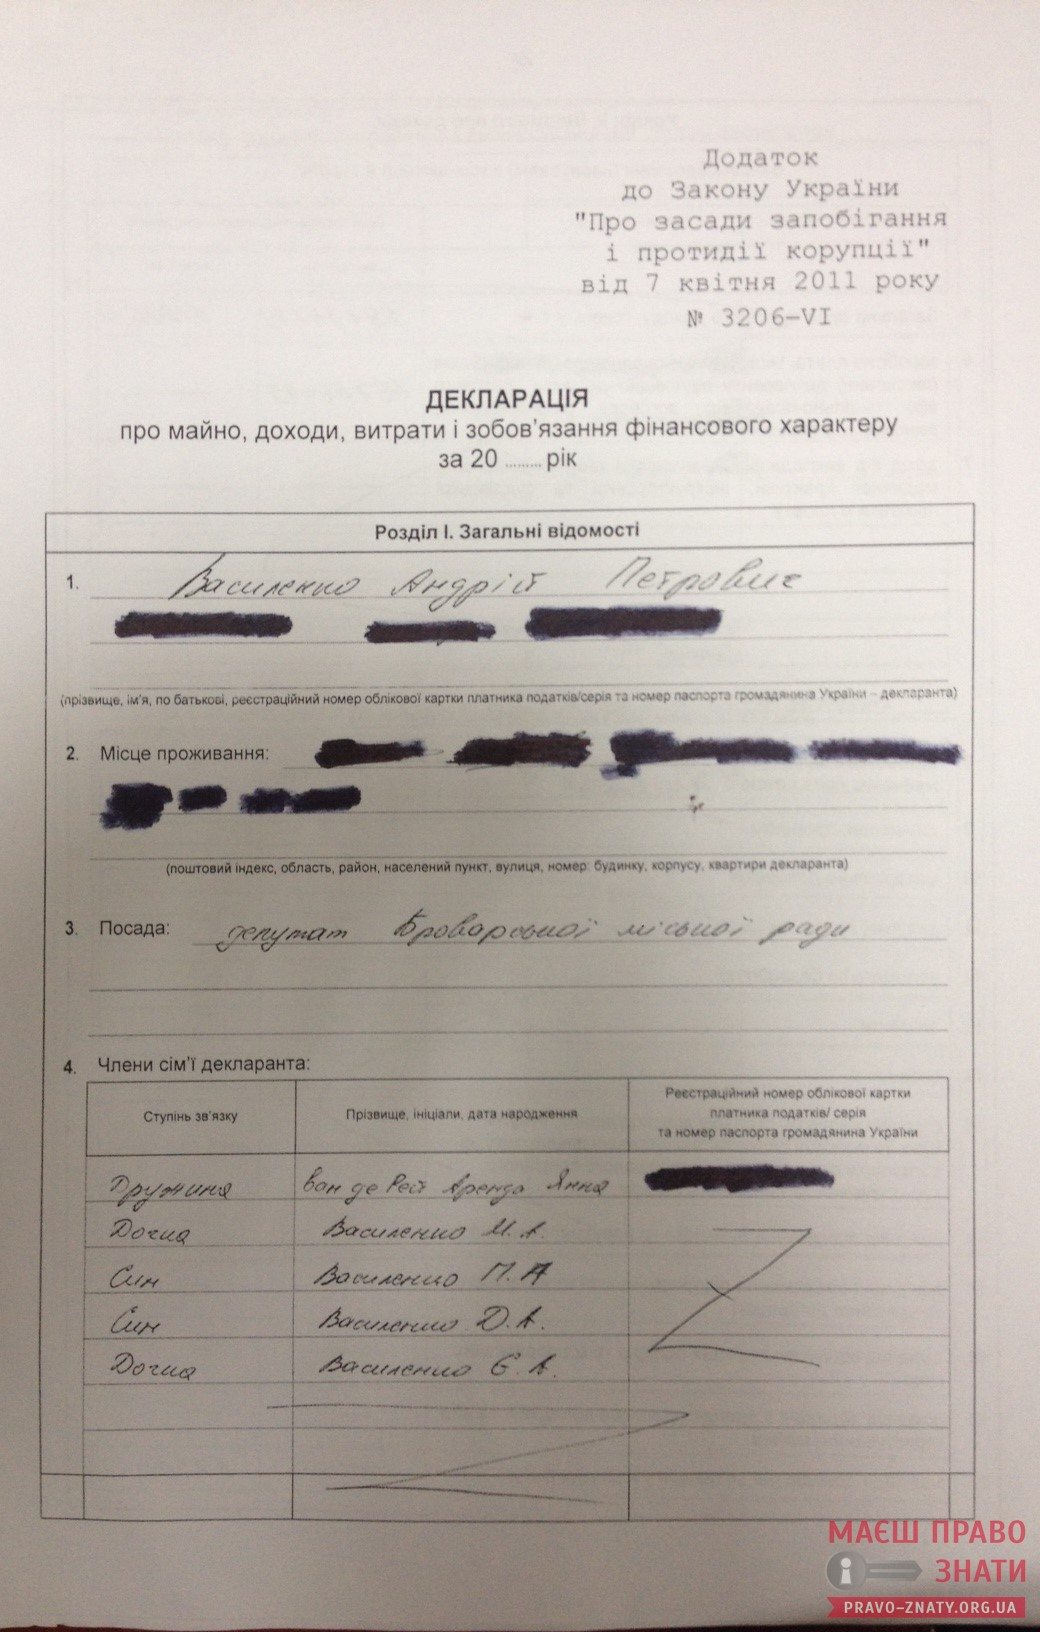 Додаток
до Закону України
"Про засади запобігання
і протидії корупції"
від 7 квітня 2011 року
№ 3206-VI
ДЕКЛАРАЦІЯ
про майно, доходи, витрати і зобов'язання фінансового характеру
за 20 ......... рік
Розділ І. Загальні відомості
1. Василенко Андрій Петрович
(прізвище, ім'я, по батькові, реєстраційний номер облікової картки платника податків/серія та номер паспорта громадянина України – декларанта)
2. Місце проживання:
(поштовий індекс, область, район, населений пункт, вулиця, номер: будинку, корпусу, квартири декларанта)
3. Посада: депутат Броварської міської ради
4. Члени сім'ї декларанта:
Ступінь зв'язку
Прізвище, ініціали, дата народження
Реєстраційний номер облікової картки
платника податків/ серія
та номер паспорта громадянина України
Дружина ван де Рей Аренда Янна
Дочка Василенко М. А.
Син Василенко П. А
Син Василенко Д. А.
Дочка Василенко Є. А.
МАЄШ ПРАВО
ЗНАТИ
PRAVO-ZNATY.ORG.UA